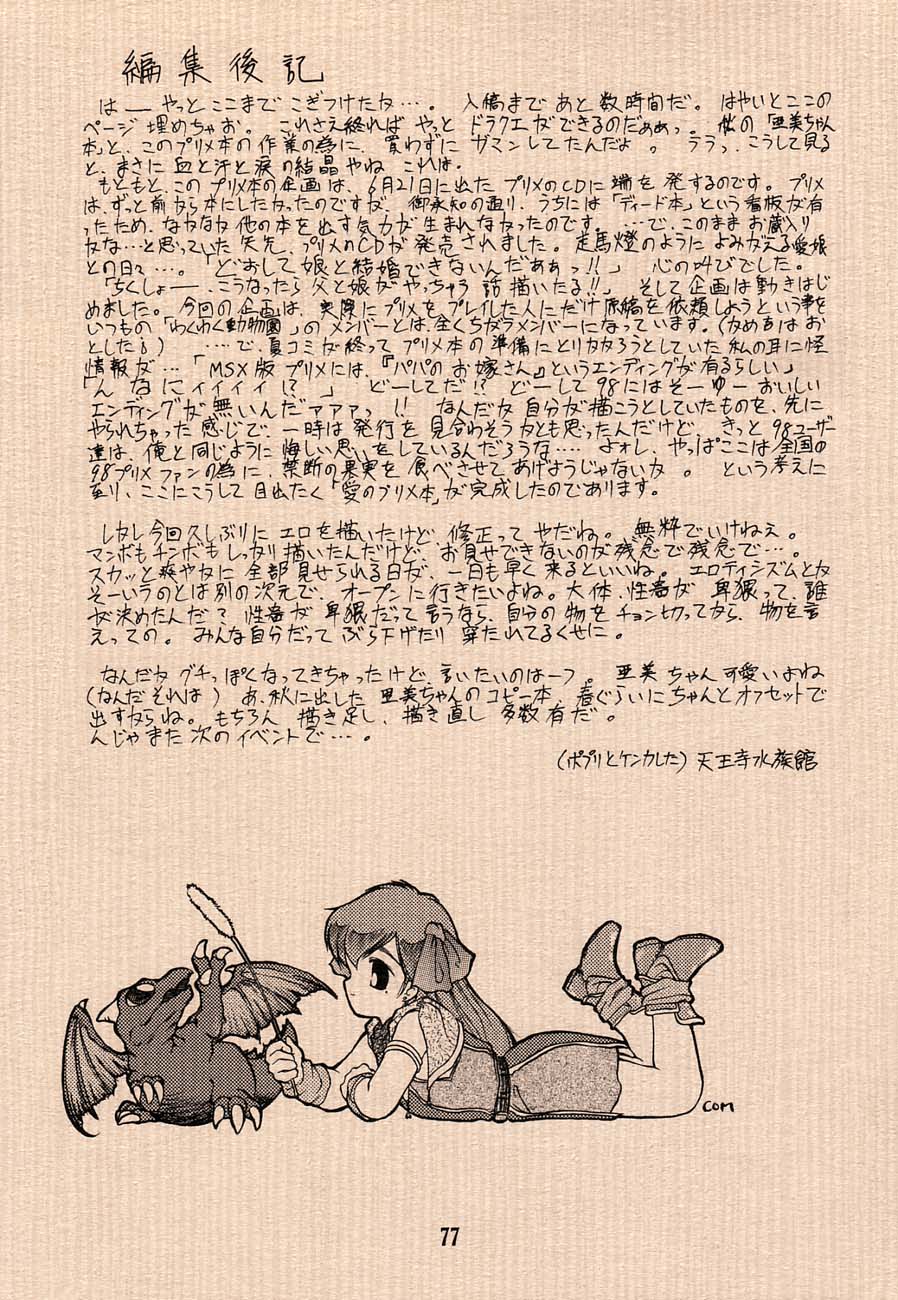 編集後記
は── やっと ここまで こぎつけたカ…。 入稿まで あと 数時間だ。 はやいとこ この
ページ 埋めちゃお。 これさえ終れば やっと ドラクエが できるのだぁぁっ。 私の 「亜美ちゃん
本」と、このプリメ本の 作業の為に、買わずに ガマンしてたんだよ 。 ララっ、こうして見る
と、まさに 血と汗と涙の結晶やね これは。
もともと、この プリメ本の企画は、6月21日に出た プリメのCDに 端を 発するのです。 プリメ
は、ずっと前から本にしたかったのですが、御承知の通り、うちには「ディード本」という看板が有
ったため、なかなか 他の本を 出す気力が 生まれなかったのです。 …で、このまま お蔵入り
かな…と思っていた 矢先、プリメのCDが 発売されました。 走馬燈のように よみがえる愛娘
との日々…。「どおして 娘と 結婚できないんだぁぁっ!!」 心の叫びでした。
「ちくしょー、こうなったら 父と娘が やっちゃう 話 描いたる!!」 そして 企画は 動きはじ
めました。 今回の企画は、実際にプリメを プレイした人にだけ 原稿を 依頼しようという事で
いつもの「わくわく動物園」のメンバーとは、全くちがうメンバーになっています。(
)   …で、夏コミが 終って プリメ本の 準備に とりかかろうとしていた 私の耳に 怪
情報が …「MSX版 プリメには、『パパの お嫁さん』というエンディングが 有るらしい」
「んなにィィィィ!?」 どーしてだ!? どーして98にはそーゆー おいしい
エンディングが 無いんだァァァっ!! なんだか 自分が 描こうとしていたものを、先に
やられちゃった 感じで、一時は 発行を 見合わそうかとも思ったんだけど、きっと 98ユーザー
達は、俺と同じように 悔しい思いをしているんだろうな…。よォし、やっぱ ここは 全国の
98プリメファンの為に、禁断の果実を 食べさせて あげようじゃないか 。 という考えに
至り、ここにこうして 目出たく 「愛のプリメ本」が 完成したのであります。
しかし 今回 久しぶりに エロを 描いたけど、修正って やだね。 無粋でいけねえ。
マンボもチンボも しっかり 描いたんだけど、お見せできないのが 残念で 残念で…。
スカッと 爽やかに 全部 見せられる日が、一日も 早く 来るといいね。 エロティシズムとか
そーいうのとは 別の次元で、オープンに行きたいよね。大体、性毒が 卑猥って、誰
が決めたんだ? 性毒が 卑猥だって 言うなら、自分の 物を チョン切ってから、物を言
えっての。 みんな自分だって ぶら下げたり 穿たれてるくせに。
なんだか グチっぽくなってきちゃったけど、言いたいのは一つ 。 亜美ちゃん 可愛いよね
(なんだそれは) あ、秋に出した 亜美ちゃんのコピー本、春ぐらいに ちゃんと オフセットで
出すからね。 もちろん 描き足し、描き直し 多数有だ。
んじゃまた 次のイベントで…。
(ポプリとケンカした) 天王寺水族館
COM
77